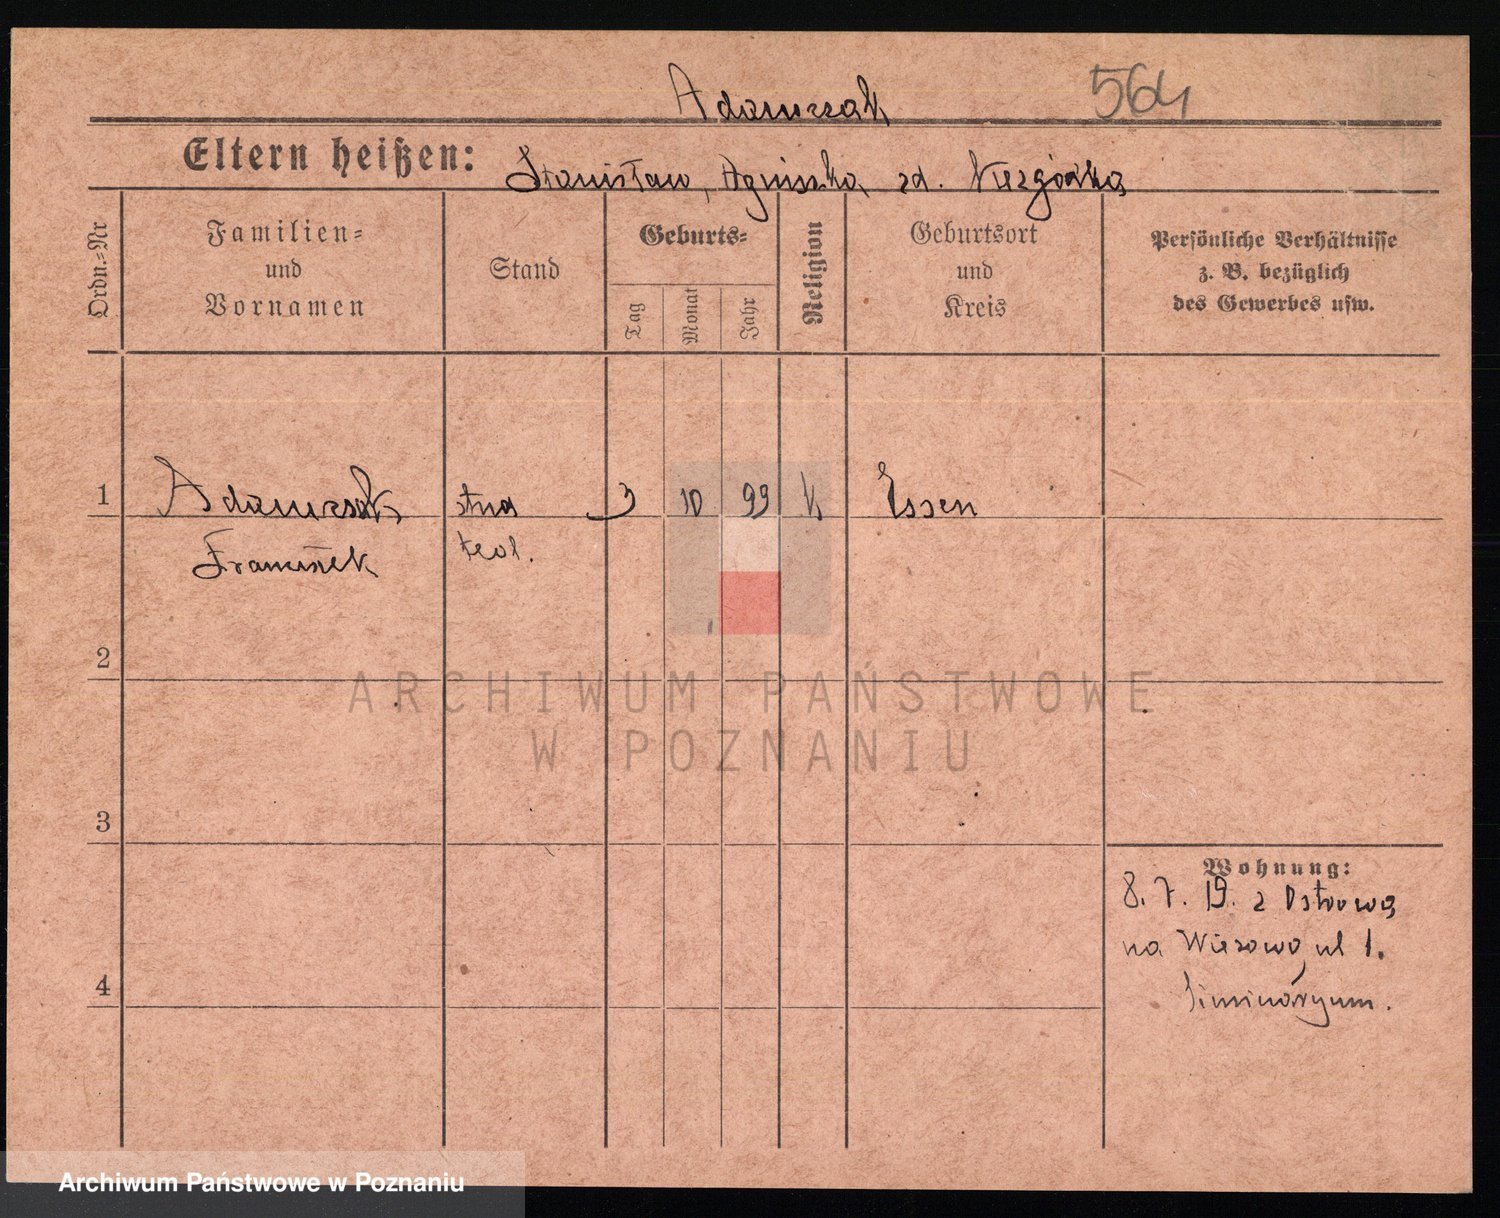 Adamczak 564
Eltern heißen: Stanisław, Agniszka zd. Niezgódka
Ordn.-Nr
Familien-
und
Vornamen
Stand
Geburts-
Tag
Monat
Jahr
Religion
Geburtsort
und
Kreis
Persönliche Verhältnisse
z. B. bezüglich
des Gewerbes usw.
1 Adamczak stud 3 10 99 K Essen
Franciszek teol.
2
ARCHIWUM PAŃSTWOWE
W POZNANIU
3
Wohnung:
8. 7. 19. z Ostrowa
na Wieżową ul 1.
4
Siminaryum.
Archiwum Państwowe w Poznaniu